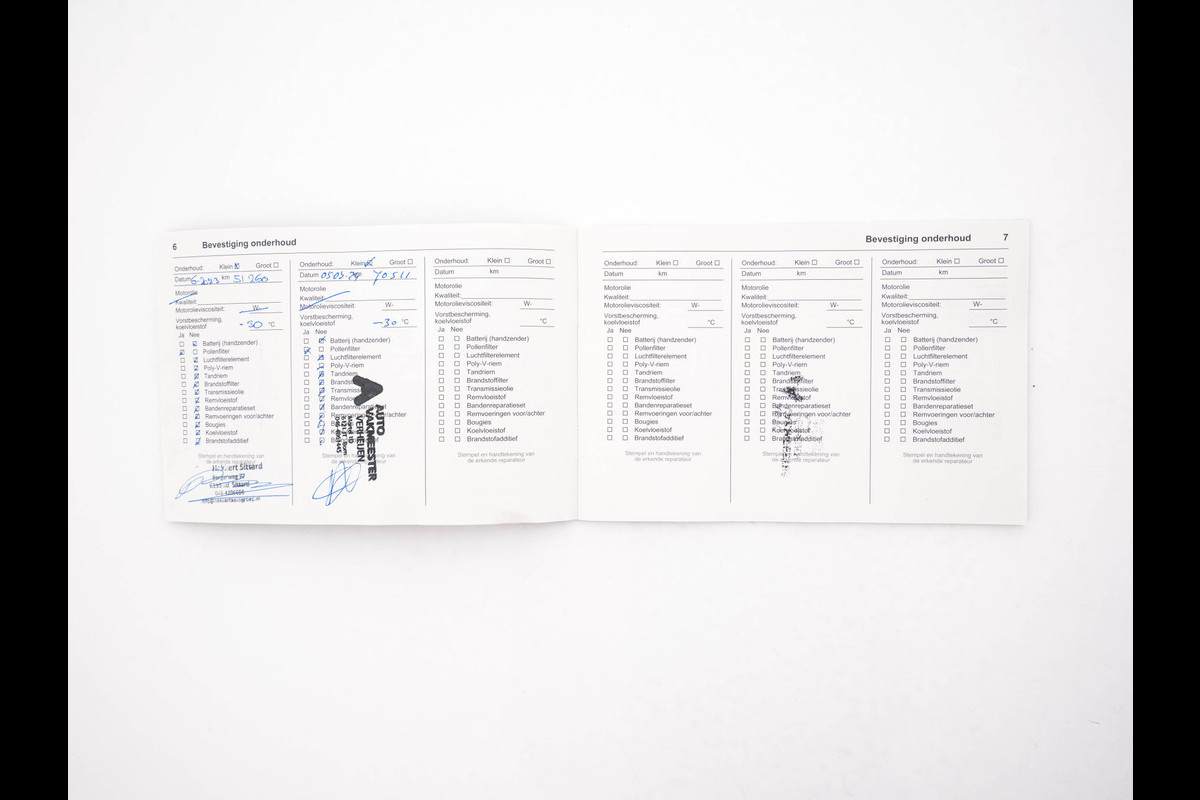 6 Bevestiging onderhoud
Onderhoud: Klein Groot
Datum km 51260
Motorolie
Kwaliteit:
Motorolieviscositeit: W-
Vorstbescherming,
koelvloeistof -30 °C
Ja Nee
Batterij (handzender)
Pollenfilter
Luchtfilterelement
Poly-V-riem
Tandriem
Brandstoffilter
Transmissieolie
Remvloeistof
Bandenreparatieset
Remvoeringen voor/achter
Bougies
Koelvloeistof
Brandstofadditief
Stempel en handtekening van
de erkende reparateur
Sittard
Onderhoud: Klein Groot
Datum 70511
Motorolie
Kwaliteit:
Motorolieviscositeit: W-
Vorstbescherming,
koelvloeistof -30 °C
Ja Nee
Batterij (handzender)
Pollenfilter
Luchtfilterelement
Poly-V-riem
Tandriem
AUTO
VAKMEESTER
VERHEIJEN
Onderhoud: Klein Groot
Datum km
Motorolie
Kwaliteit:
Motorolieviscositeit: W-
Vorstbescherming,
koelvloeistof °C
Ja Nee
Batterij (handzender)
Pollenfilter
Luchtfilterelement
Poly-V-riem
Tandriem
Brandstoffilter
Transmissieolie
Remvloeistof
Bandenreparatieset
Remvoeringen voor/achter
Bougies
Koelvloeistof
Brandstofadditief
Stempel en handtekening van
de erkende reparateur
Bevestiging onderhoud 7
Onderhoud: Klein Groot
Datum km
Motorolie
Kwaliteit:
Motorolieviscositeit: W-
Vorstbescherming,
koelvloeistof °C
Ja Nee
Batterij (handzender)
Pollenfilter
Luchtfilterelement
Poly-V-riem
Tandriem
Brandstoffilter
Transmissieolie
Remvloeistof
Bandenreparatieset
Remvoeringen voor/achter
Bougies
Koelvloeistof
Brandstofadditief
Stempel en handtekening van
de erkende reparateur
Onderhoud: Klein Groot
Datum km
Motorolie
Kwaliteit:
Motorolieviscositeit: W-
Vorstbescherming,
koelvloeistof °C
Ja Nee
Batterij (handzender)
Pollenfilter
Luchtfilterelement
Poly-V-riem
Tandriem
Brandstoffilter
Transmissieolie
Remvloeistof
Bandenreparatieset
Remvoeringen voor/achter
Bougies
Koelvloeistof
Brandstofadditief
Stempel en handtekening van
de erkende reparateur
Onderhoud: Klein Groot
Datum km
Motorolie
Kwaliteit:
Motorolieviscositeit: W-
Vorstbescherming,
koelvloeistof °C
Ja Nee
Batterij (handzender)
Pollenfilter
Luchtfilterelement
Poly-V-riem
Tandriem
Brandstoffilter
Transmissieolie
Remvloeistof
Bandenreparatieset
Remvoeringen voor/achter
Bougies
Koelvloeistof
Brandstofadditief
Stempel en handtekening van
de erkende reparateur